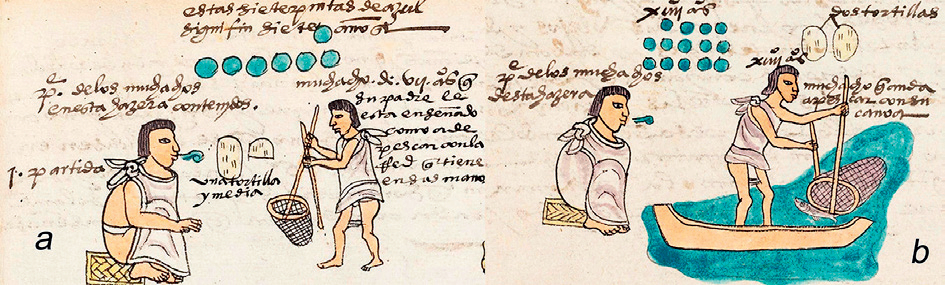 estas siete puntas de azul
signifi͠n siete años
pe. delos muchachos
enesta hazera contenidos.
muchacho. de. vii. aºs q̃
su padre le
esta enseñado
como a de
pescar conla
Red q̃ tiene
en las mano
1. partida
una tortilla
y media
a
xiiii aºs
dos tortillas
xiiii. aºs.
pe delos muchachos
desta hazera
muchacho q̃ anda
a pescar con su
canoa
b